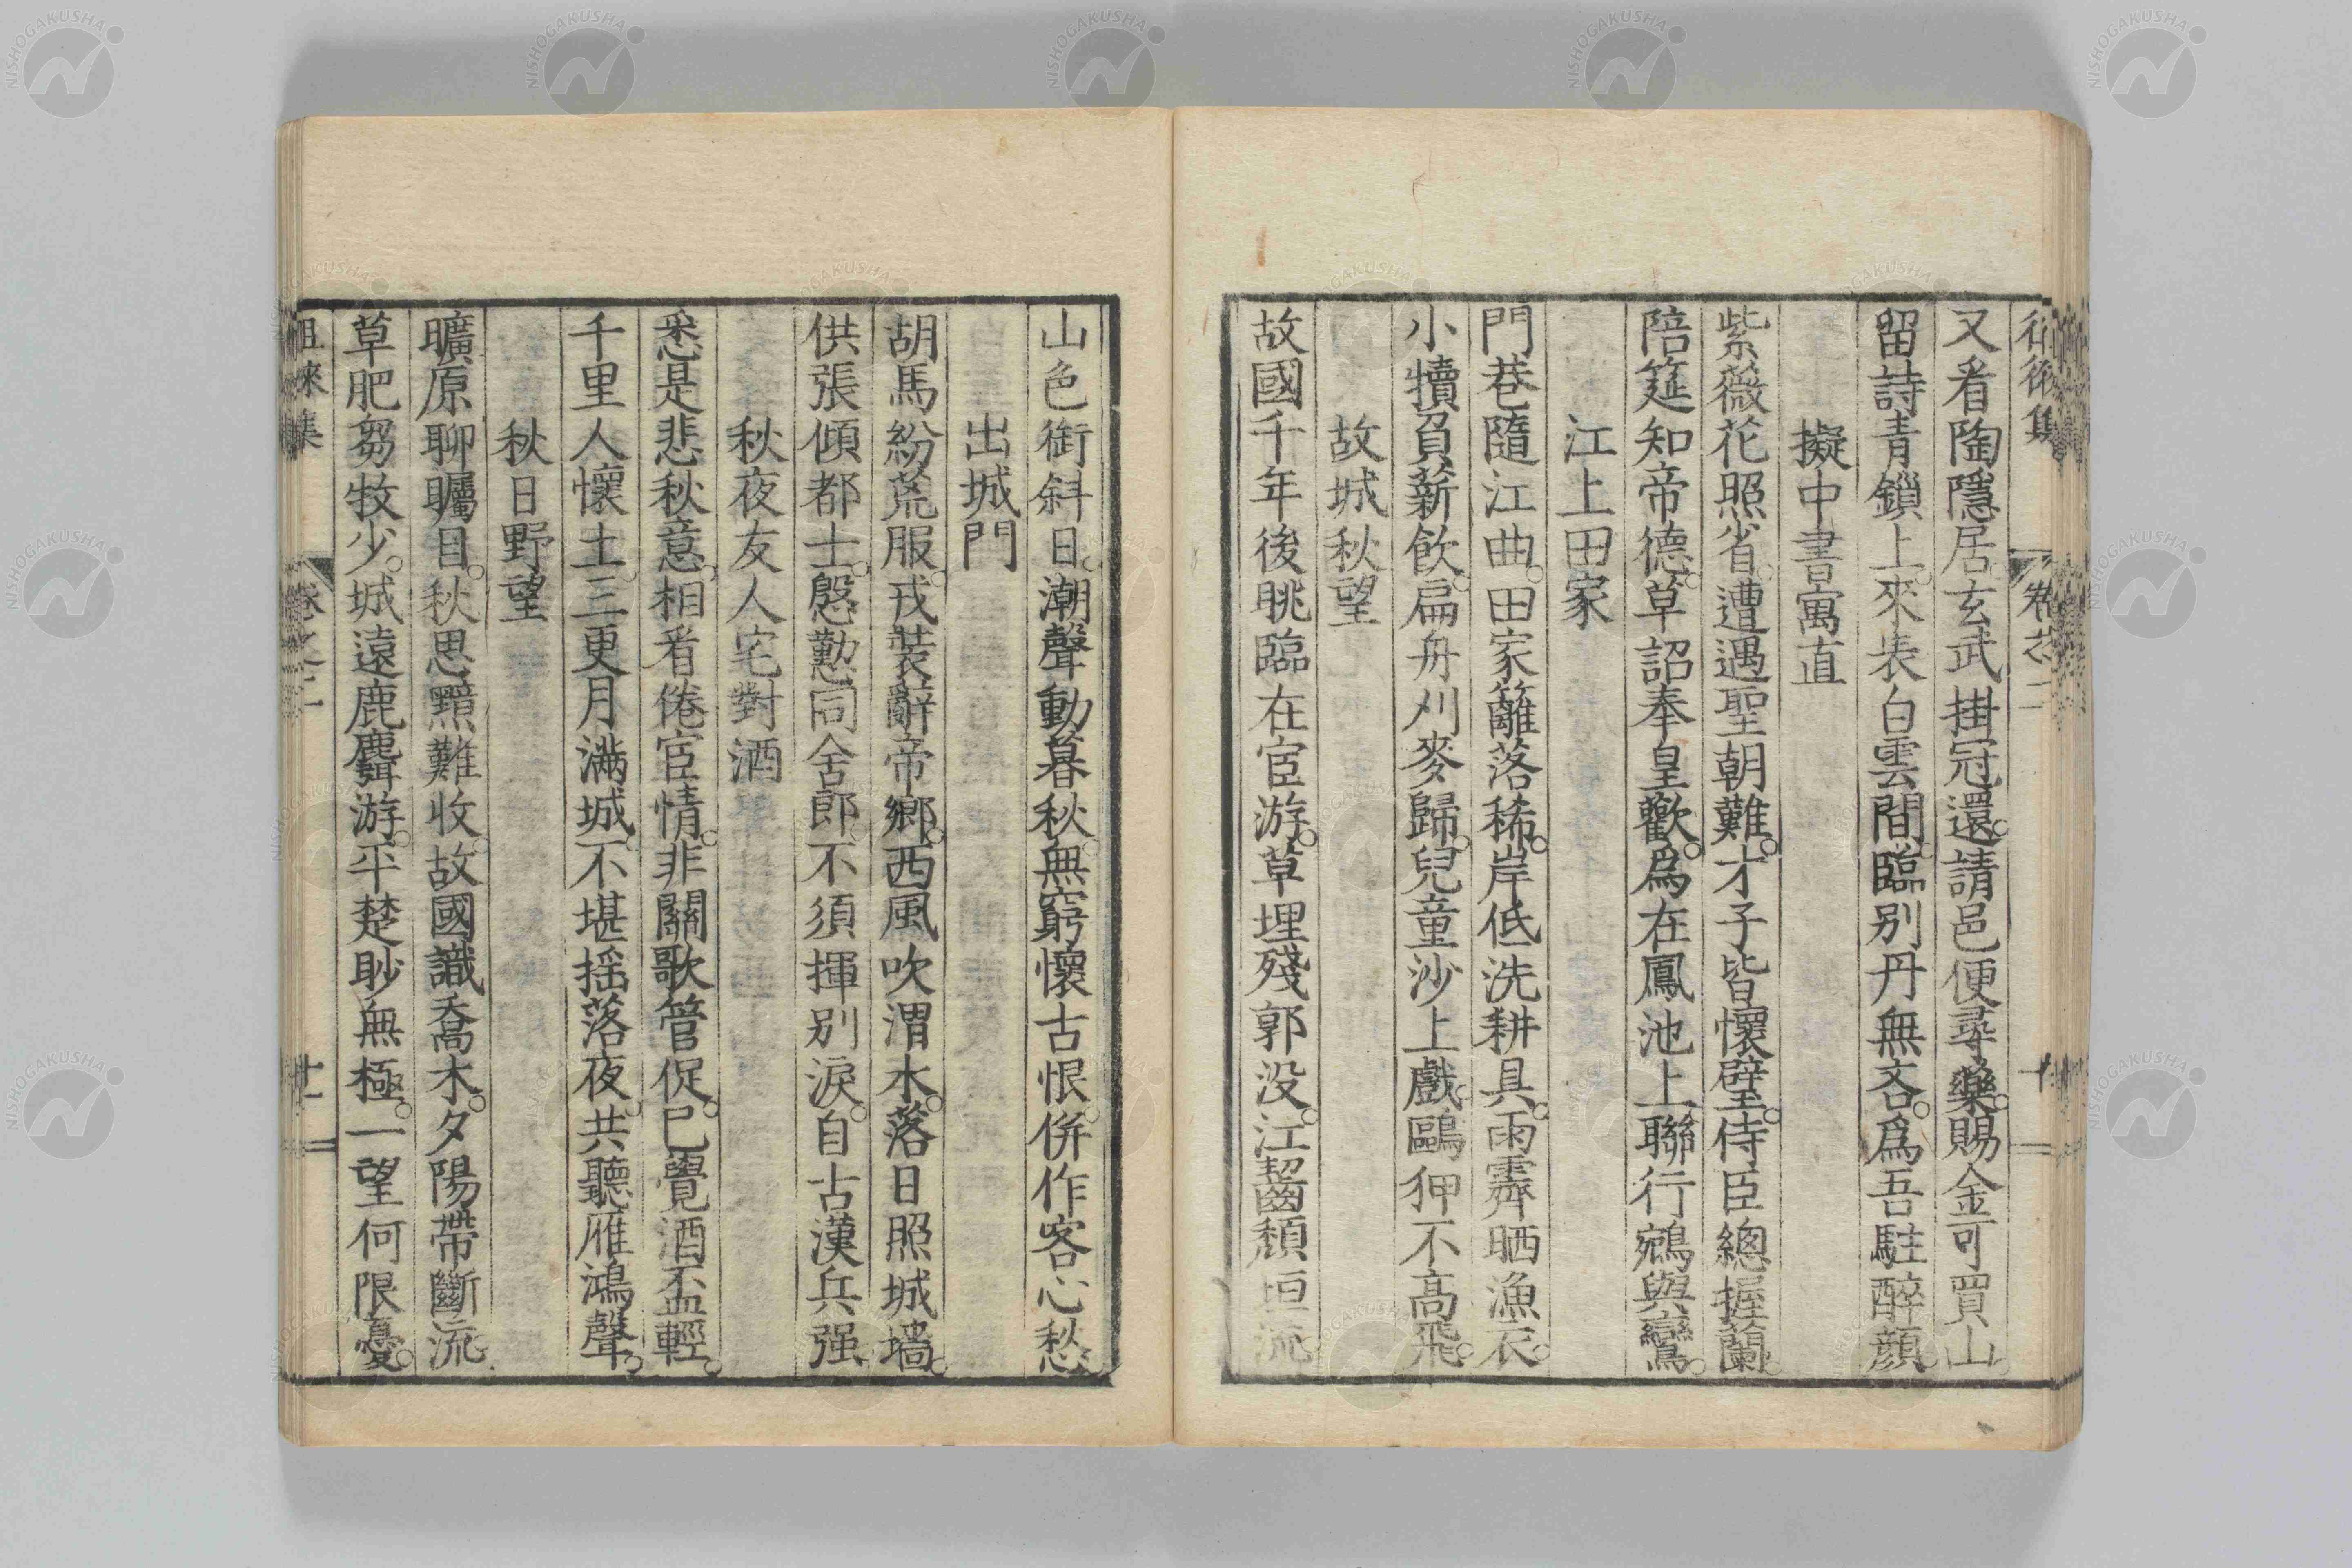 徂徠集 卷之二 十
又看陶隱居玄武掛冠還請邑便尋藥賜金可買山
留詩青鎖上來表白雲間臨別丹無吝爲吾駐醉顏
擬中書寓直
紫薇花照省遭遇聖朝難才子皆懷璧侍臣總握蘭
陪筵知帝德草詔奉皇歡爲在鳳池上聯行鵷與鸞
江上田家
門巷隨江曲田家籬落稀岸低洗耕具雨霽晒漁衣
小犢負薪飲扁舟刈麥歸兒童沙上戲鷗狎不高飛
故城秋望
故國千年後眺臨在宦游草埋殘郭没江齧頽垣流
山色銜斜日潮聲動暮秋無窮懷古恨併作客心愁
出城門
胡馬紛荒服戎裝辭帝鄉西風吹渭水落日照城墻
供張傾都士慇懃同舍郎不須揮別淚自古漢兵强
秋夜友人宅對酒
悉是悲秋意相看倦宦情非關歌管促已覺酒盃輕
千里人懷土三更月滿城不堪揺落夜共聽雁鴻聲
秋日野望
曠原聊矚目秋思黯難收故國識喬木夕陽帶斷流
草肥芻牧少城遠鹿麛游平楚眇無極一望何限憂
徂徠集 卷之二 十一